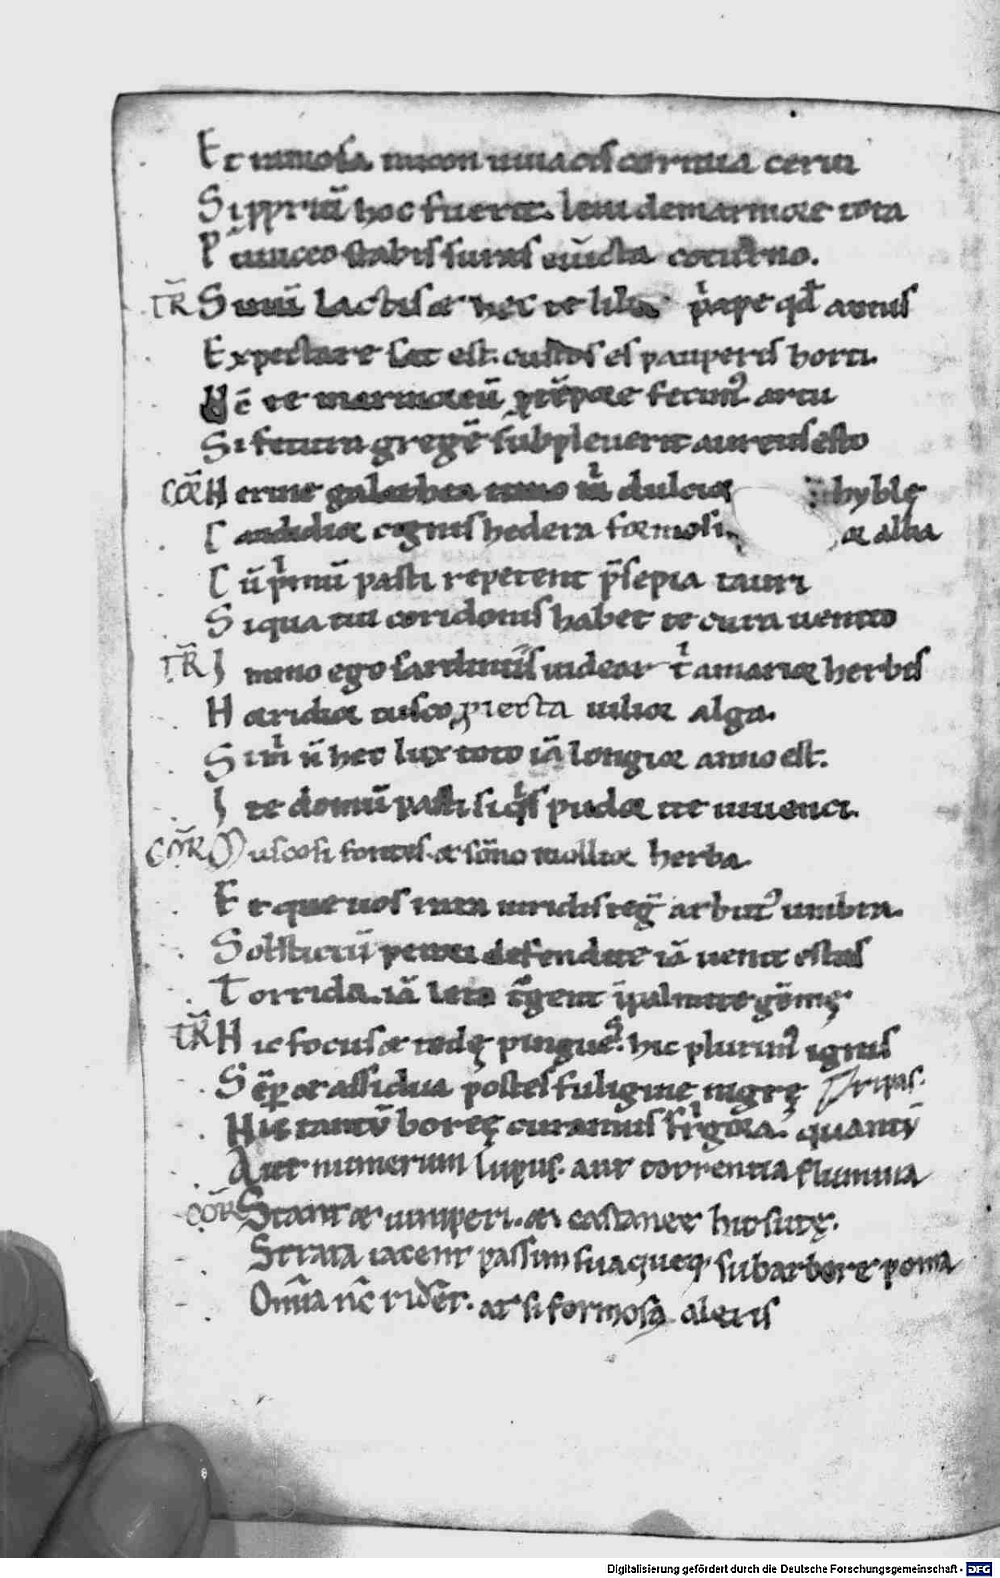 Et ramosa micon uiuacis cornua cerui
Si ppriū hoc fuerit. leui de marmore tota
Puniceo stabis suras euincta coturno.
TR̄ Sinū Lactis & hec te liba p̍ape qđ annis
Expectare sat est. custos es pauperis horti.
Nc̄ te marmoreū p tēpore fecimꝰ at tu
Si fetura gregē subpleuerit aureus esto
COR̄ Nerine galathea timo m̍ dulcior hyblę
Candidior cignis hedera formosi or alba
Cū p̍mū pasti repetent p̄sepia tauri
Siqua tui coridonis habet te cura uenito
TR̄ Immo ego sardiniis uidear t̍ amarior herbis
Horridior rusco, piecta uilior alga.
Si m̍ ñ hec lux toto iā longior anno est.
Ite domū pasti siqͥs pudor ite iuuenci.
COR̄ Muscosi fontes. & sōno mollior herba.
Et que uos rara uiridis teḡ arbutꝰ umbra.
Solsticiū pecori defendite iā uenit estas
Torrida. iā leto t͛gent ī palmite gēmę.
TR̄ Hic focus & tedę pingues. hic plurimꝰ ignis
Sēp & assidua postes fuligine nigrę
ripas.
Hic tantū boreę curamus fr̍gora. quantū
Aut numerum lupus. aut torrentia flumina
COR̄ Stant & iuniperi. & castaneę hirsutę.
Strata iacent passim sua queq; sub arbore poma
Om̄ia nc̄ rident. at si formosꝰ alexis